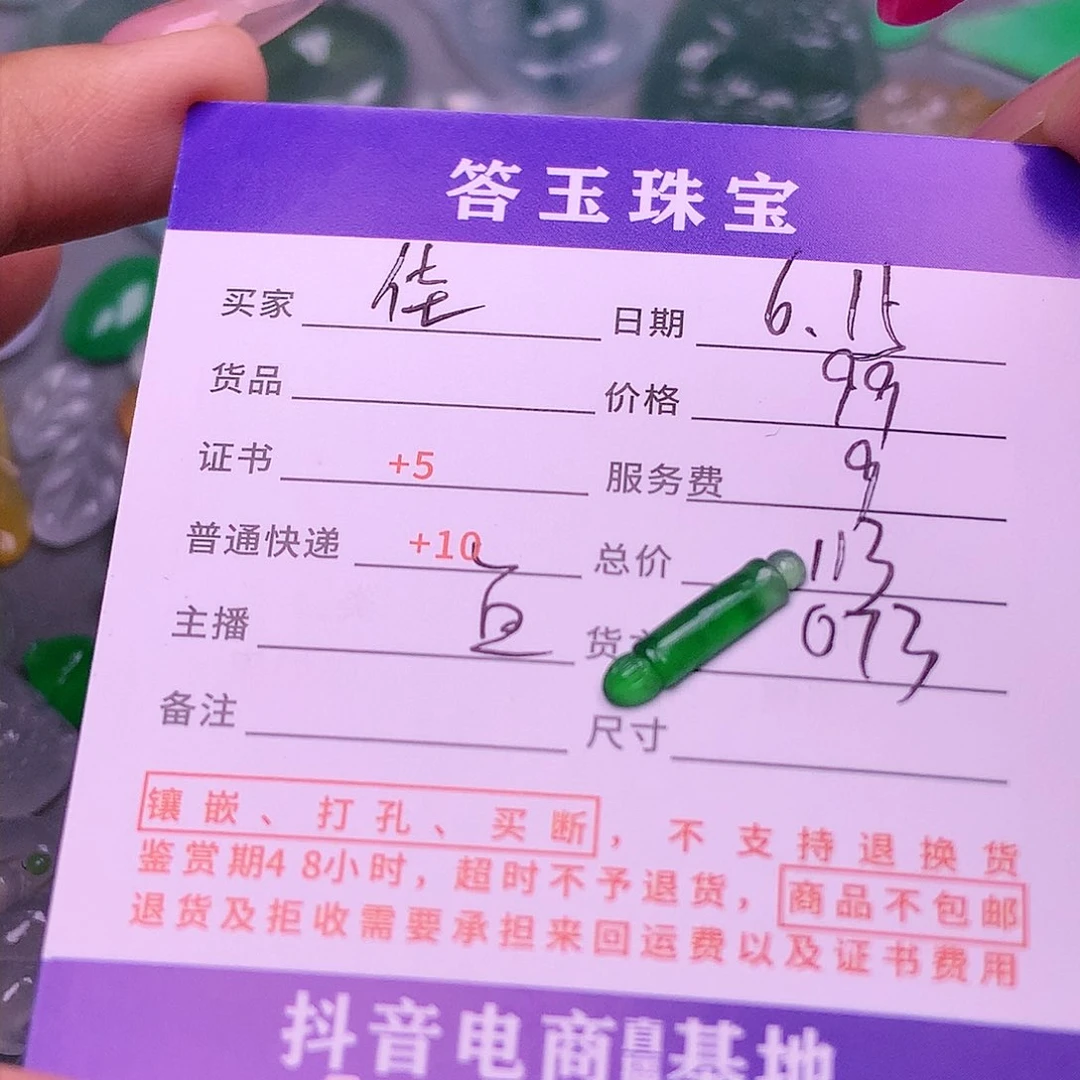 答玉珠宝
买家 佳 日期 6.15
货品 价格 99
证书 +5 服务费 9
普通快递 +10 总价 113
主播 货 073
备注 尺寸
镶嵌、打孔、买断，不支持退换货
鉴赏期48小时，超时不予退货，商品不包邮
退货及拒收需要承担来回运费以及证书费用
抖音电商直播基地